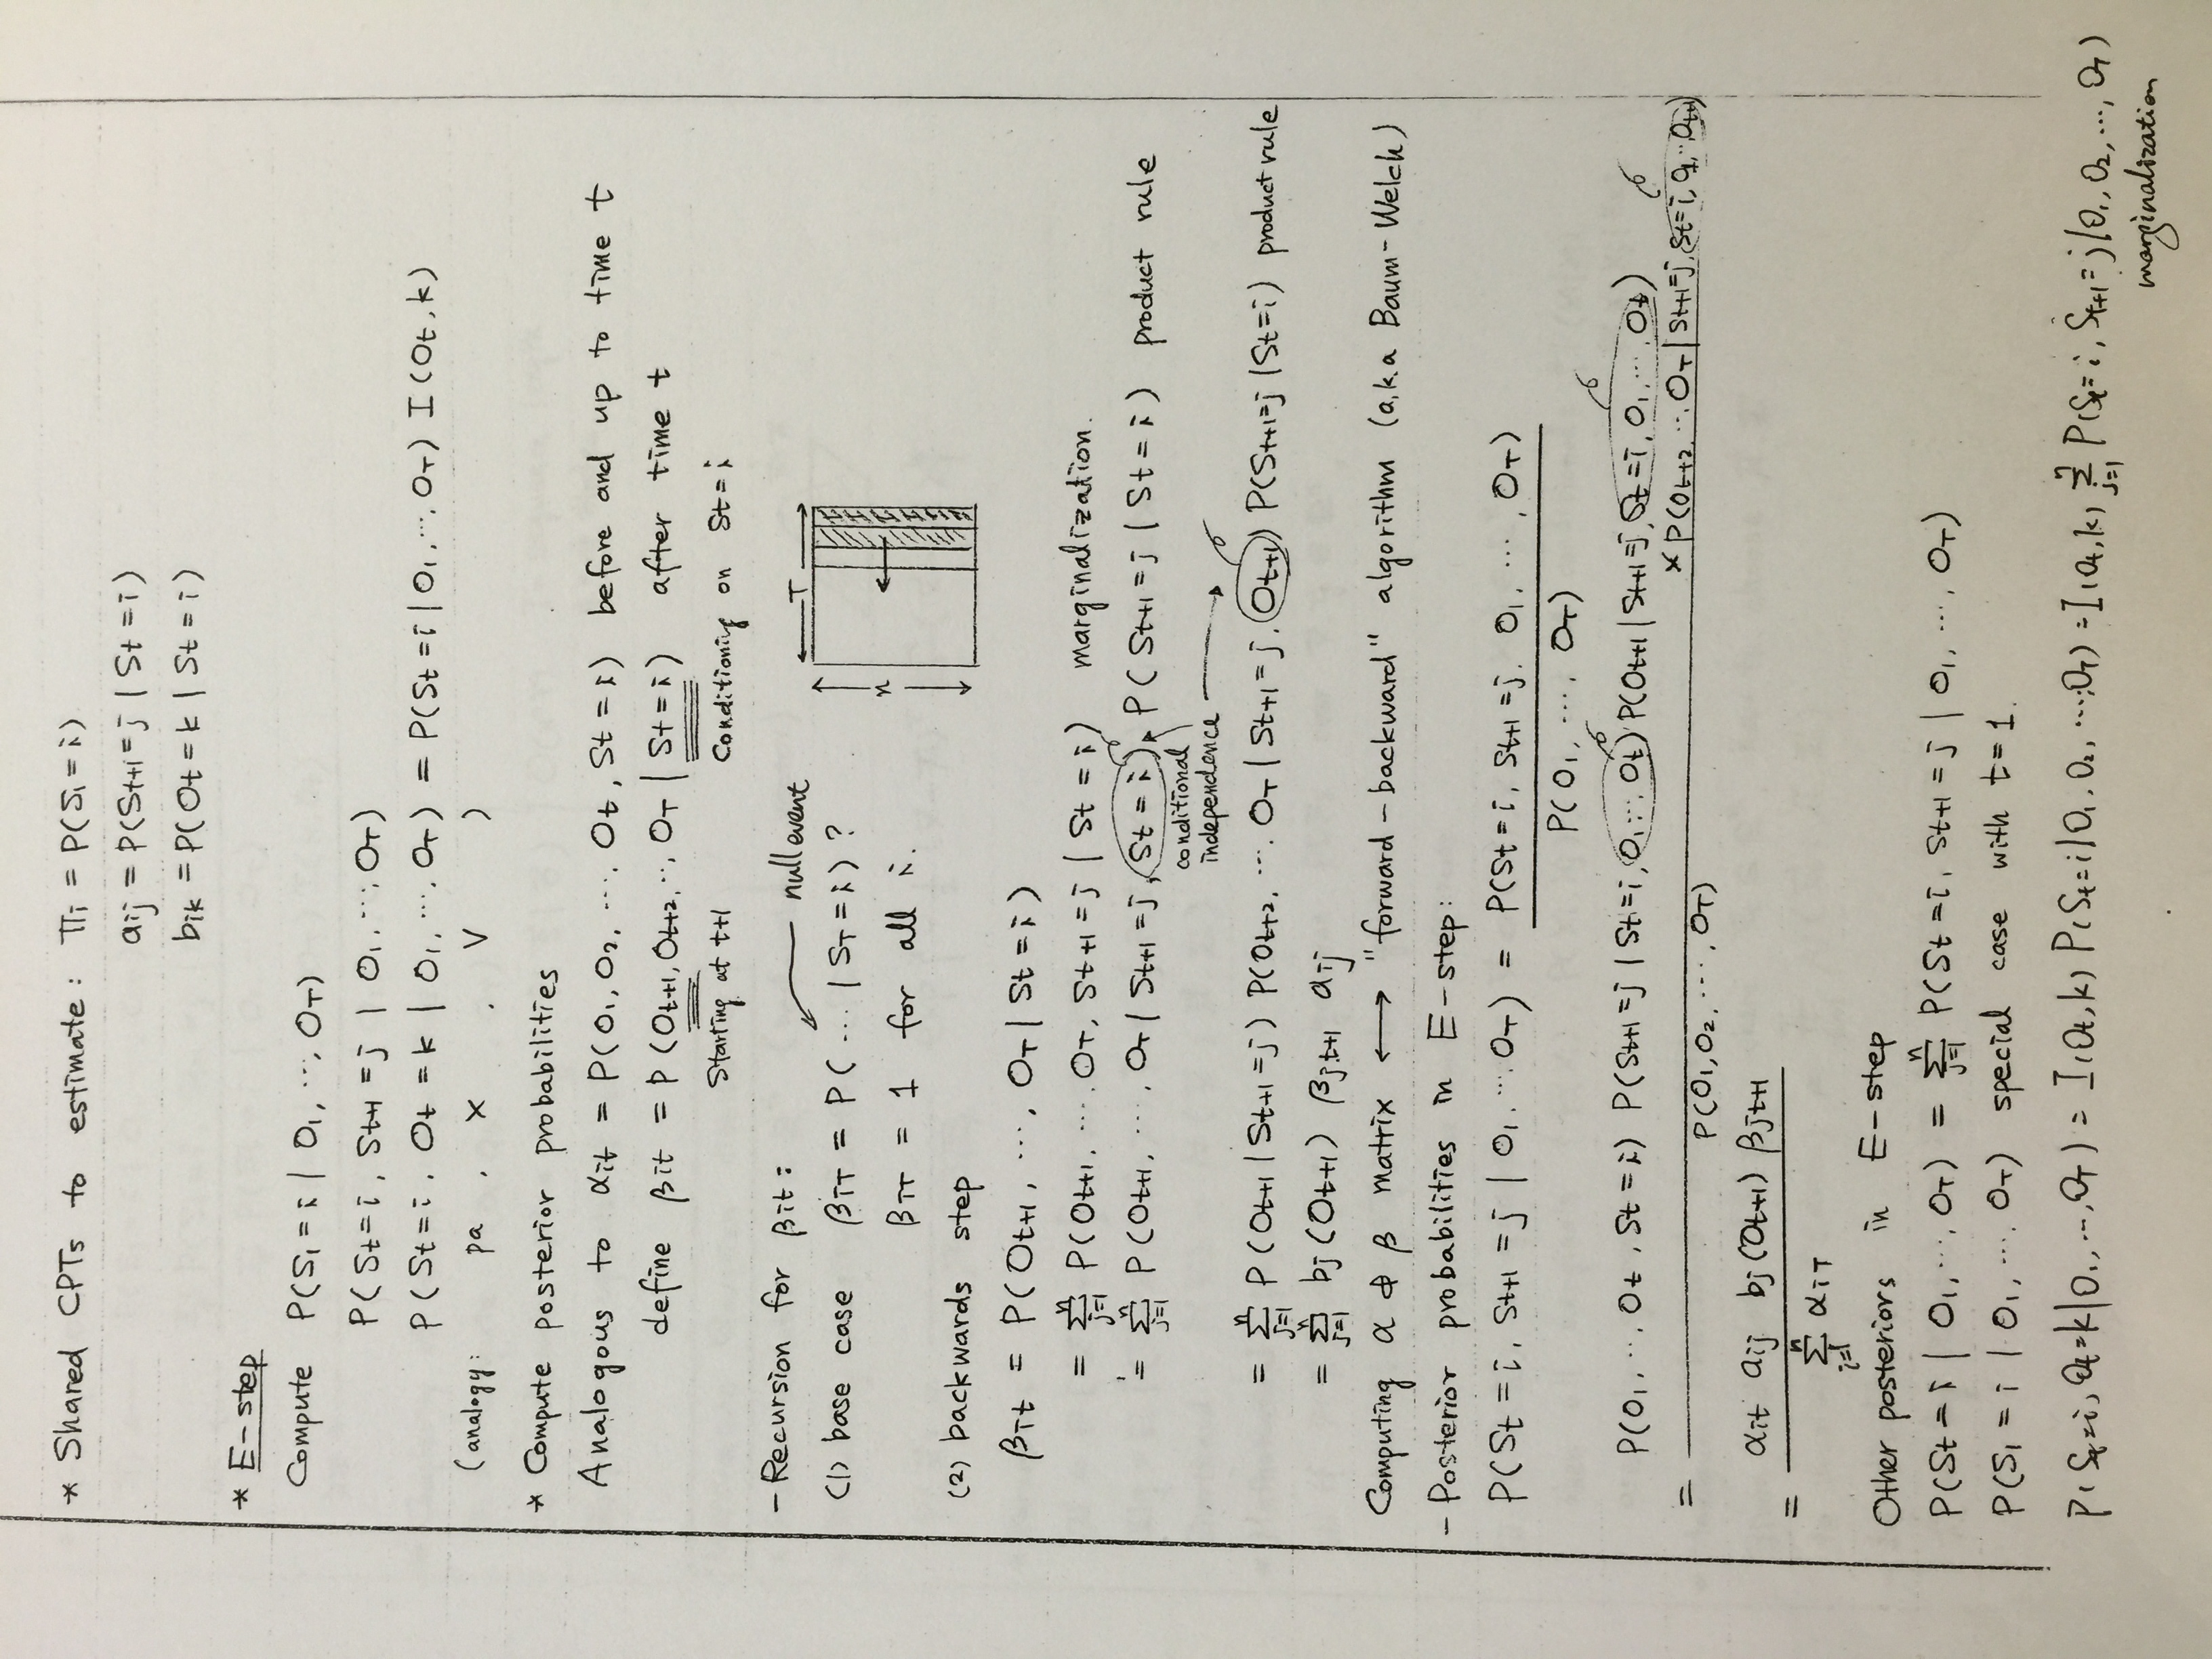 * Shared CPTs to estimate: πi = P(S1 = i)
aij = P(St+1 = j | St = i)
bik = P(Ot = k | St = i)
* E-step
Compute P(S1 = i | O1, ..., OT)
P(St = i, St+1 = j | O1, ..., OT)
P(St = i, Ot = k | O1, ..., OT) = P(St = i | O1, ..., OT) I(Ot, k)
(analogy: pa , X , V )
* Compute posterior probabilities
Analogous to αit = P(O1, O2, ..., Ot, St = i) before and up to time t
define βit = P(Ot+1, Ot+2, .., OT | St = i) after time t
Starting at t+1 Conditioning on St = i
- Recursion for βit:
null event
(1) base case βiT = P( ... | ST = i) ?
βiT = 1 for all i.
T
n
(2) backwards step
βit = P(Ot+1, ..., OT | St = i)
= Σ_{j=1}^{n} P(Ot+1, ..., OT, St+1 = j | St = i) marginalization.
= Σ_{j=1}^{n} P(Ot+1, ..., OT | St+1 = j, St = i) P(St+1 = j | St = i) product rule
conditional
independence
= Σ_{j=1}^{n} P(Ot+1 | St+1 = j) P(Ot+2, ... OT | St+1 = j, Ot+1) P(St+1 = j | St = i) product rule
= Σ_{j=1}^{n} bj(Ot+1) βj,t+1 aij
Computing α & β matrix ⟷ "forward-backward" algorithm (a.k.a Baum-Welch)
- Posterior probabilities in E-step:
P(St = i, St+1 = j | O1, ... OT) = P(St = i, St+1 = j, O1, ..., OT)
P(O1, ..., OT)
P(O1, ..., Ot, St = i) P(St+1 = j | St = i, O1, ... Ot) P(Ot+1 | St+1 = j, St = i, O1, ..., Ot)
× P(Ot+2, ... OT | St+1 = j, St = i, O1, .. Ot+1)
=
P(O1, O2, ..., OT)
αit aij bj(Ot+1) βjt+1
=
Σ_{i=1}^{n} αiT
Other posteriors in E-step
P(St = i | O1, ..., OT) = Σ_{j=1}^{n} P(St = i, St+1 = j | O1, ..., OT)
P(S1 = i | O1, ..., OT) special case with t = 1.
P(St = i, Ot = k | O1, ..., OT) = I(Ot, k) P(St = i | O1, O2, ..., OT) = I(Ot, k) Σ_{j=1}^{n} P(St = i, St+1 = j | O1, O2, ..., OT)
marginalization